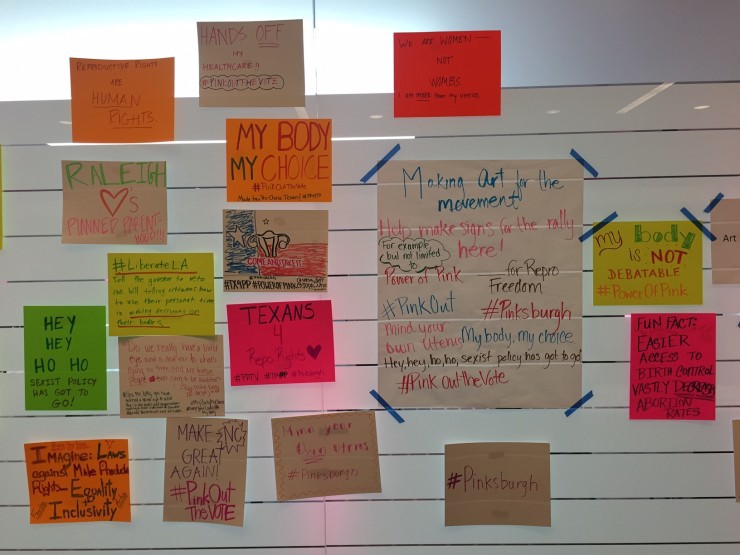 HANDS OFF
MY
HEALTHCARE!!
#PINKOUTTHEVOTE
WE ARE WOMEN —
NOT
WOMBS.
I am more than my uterus.
REPRODUCTIVE RIGHTS
ARE
HUMAN
RIGHTS.
MY BODY
MY CHOICE
#PinkOutTheVote
RALEIGH
♥'S
PLANNED PARENT-
HOOD!!!
COME AND TAKE IT
#TXYPP #POWEROFPINK
Making Art for the
movement!
Help make signs for the rally
here!
For example,
but not limited
to
Power of Pink
for Repro
Freedom
#PinkOut
#Pinksburgh
mind your
own uterus
My body, my choice
Hey, hey, ho, ho, sexist policy has got to go!
#Pink out the Vote
my body
IS NOT
DEBATABLE
#PowerOfPink
Art
#LiberateLA
Tell the governor to veto
the bill telling citizens how
to use their personal time
in making decisions on
their bodies.
HEY
HEY
HO HO
SEXIST POLICY
HAS GOT TO
GO!
TEXANS
4
Repro Rights ♥
FUN FACT:
EASIER
ACCESS TO
BIRTH CONTROL
VASTLY DECREASES
ABORTION
RATES
Do we really have only
IMAgINe: LAWS
against Male
Rights_ Equality
Inclusivity
MAKE NC
GREAT
AGAIN!
#PinkOut
The VOTE
Mind your
Own uterus
#Pinksburgh
#Pinksburgh